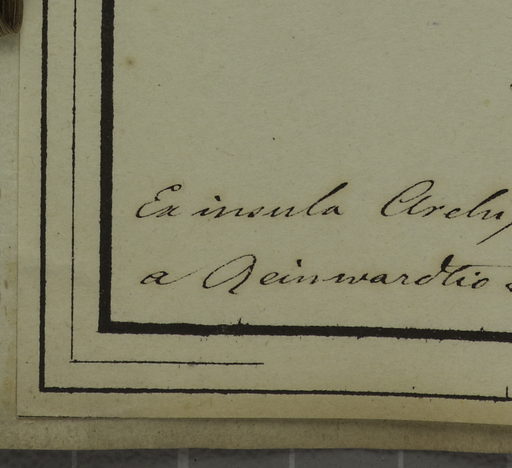 Ex insula Arehu
a Reinwardtio